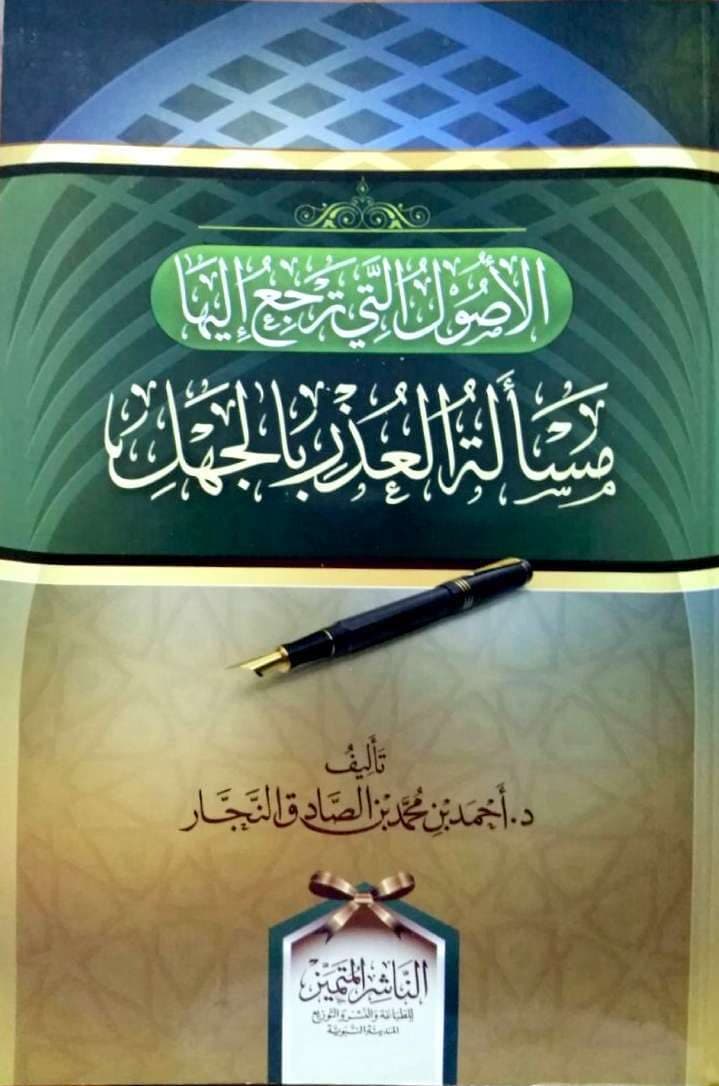 الأُصُوْلُ الَّتِي تَرْجِعُ إِلَيْهَا
مَسْأَلَةُ العُذْرِ بِالجَهْلِ
تَأْلِيفُ
د. أَحْمَد بْنِ مُحَمَّد بْنِ الصَّادِق النَّجَّار
النَّاشِرُ المُتَمَيِّز
للطباعة والنشر والتوزيع
المدينة النبوية